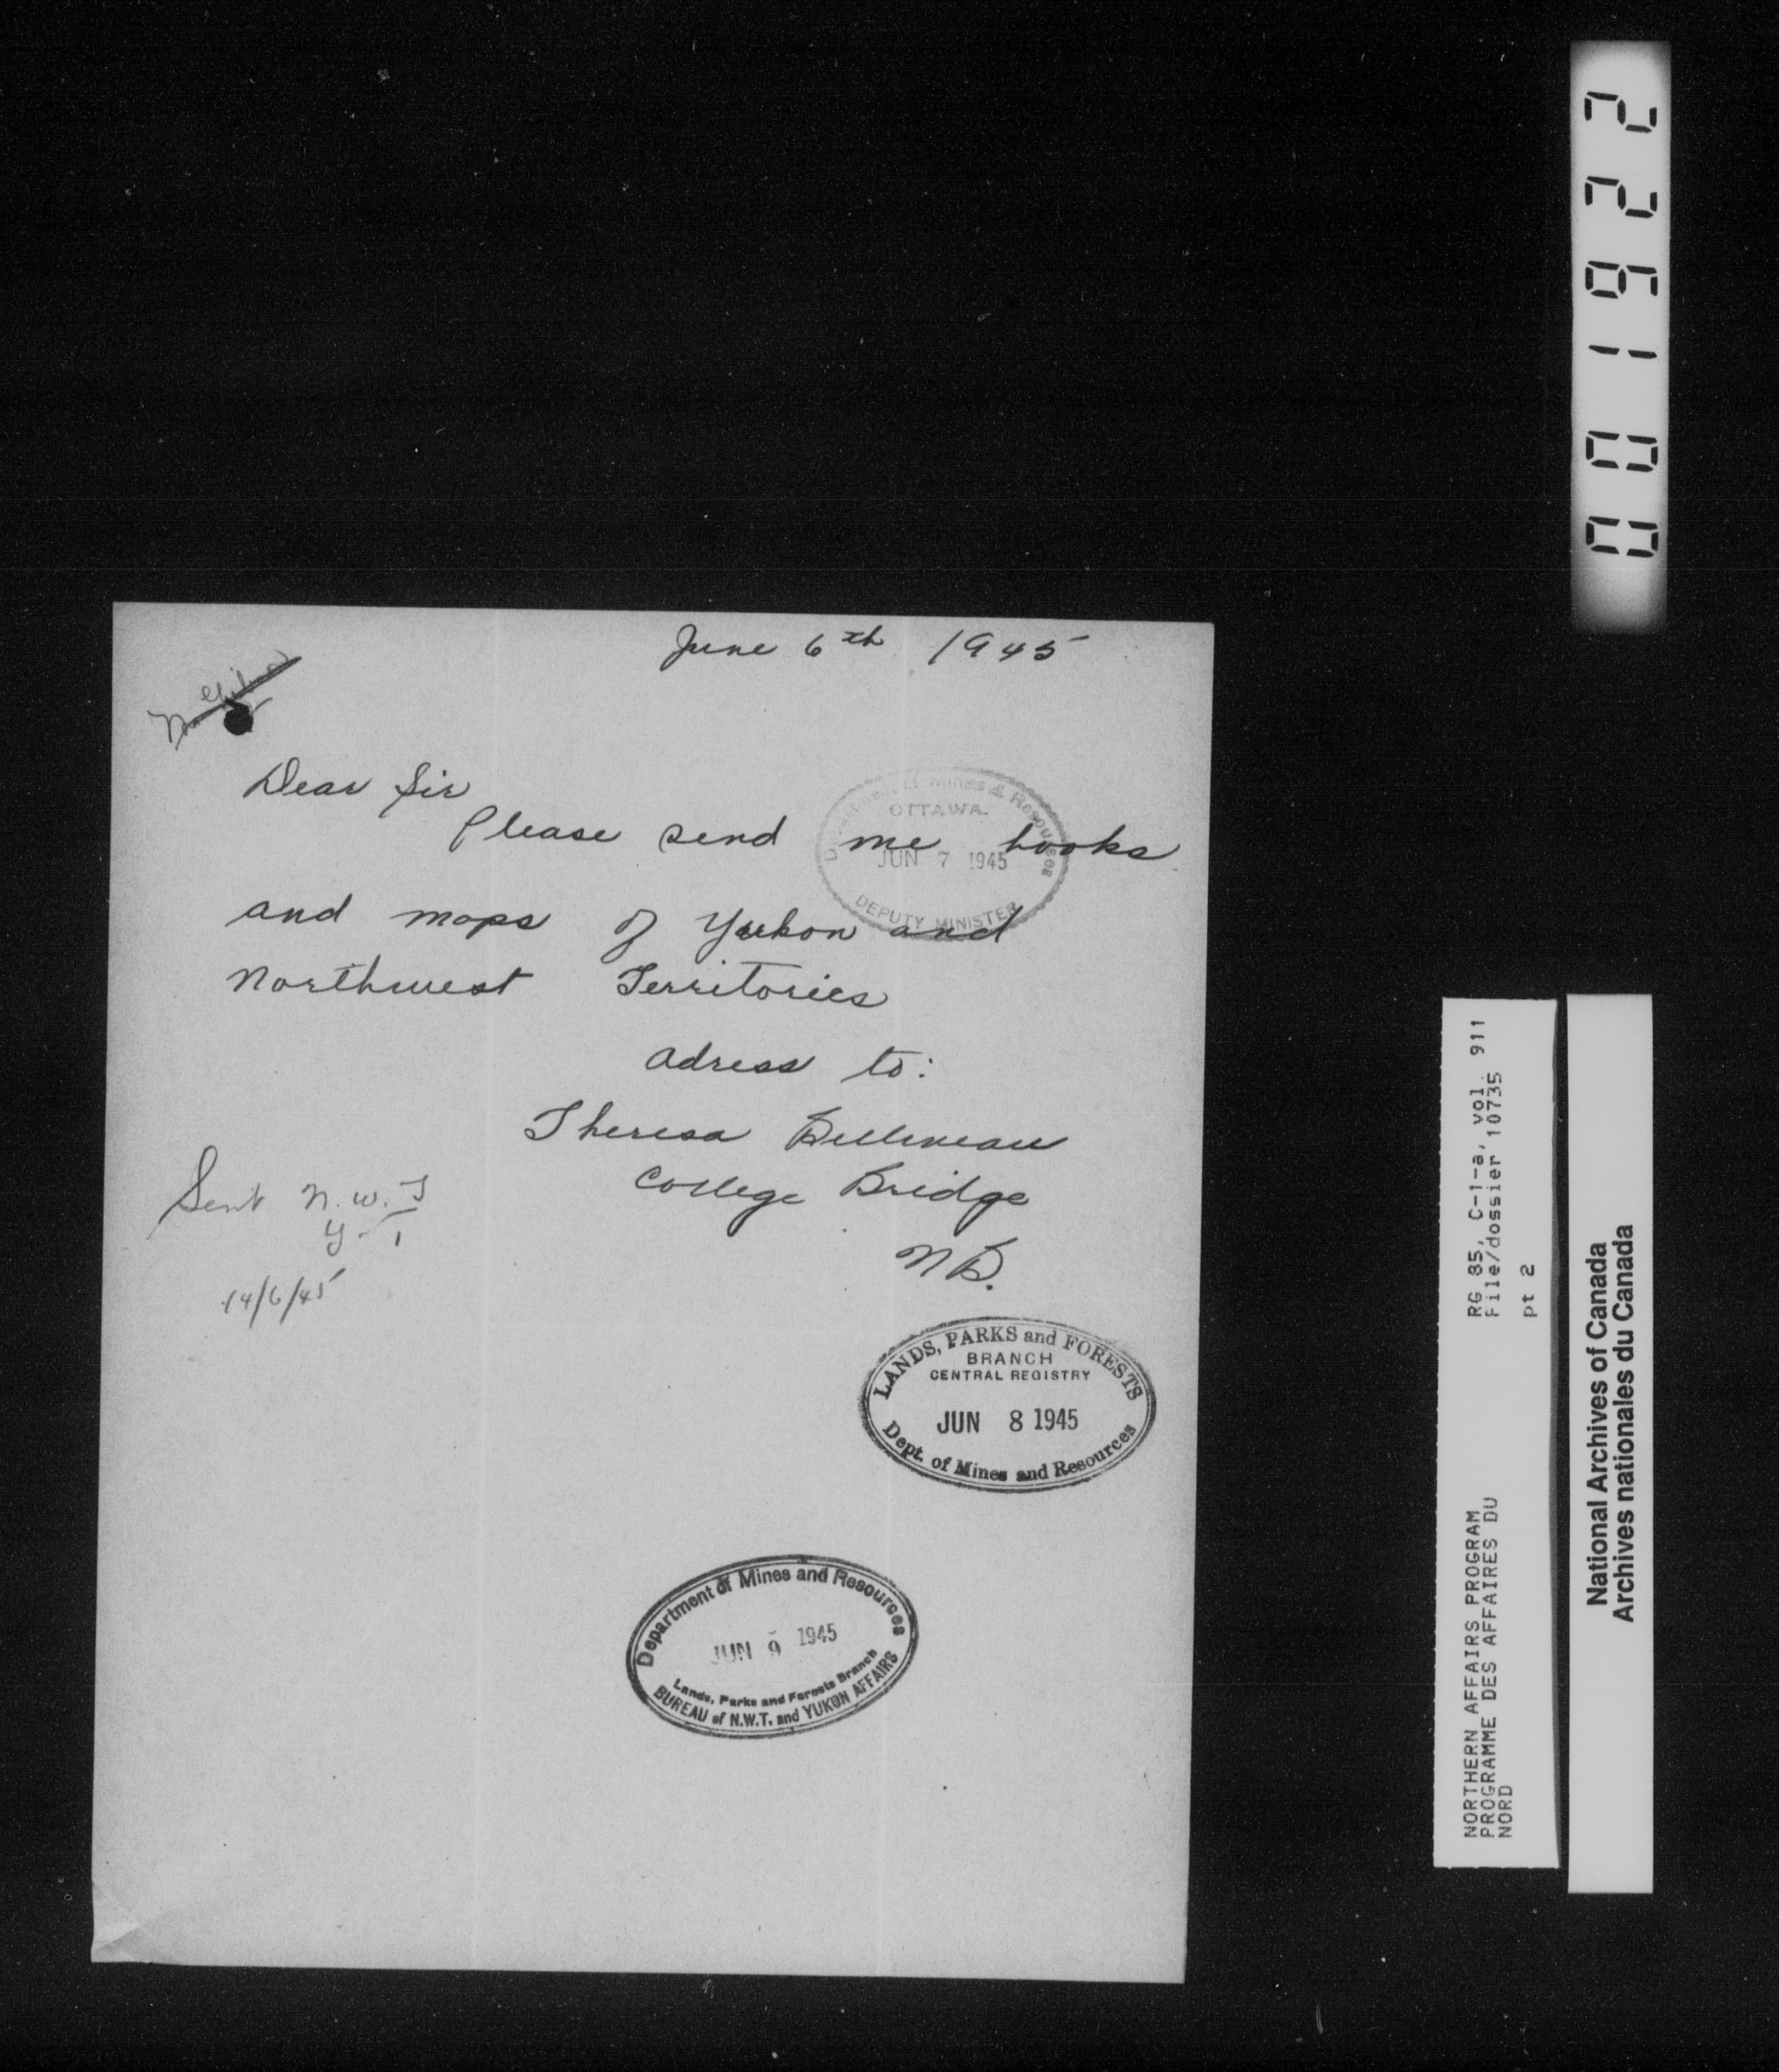 June 6th 1945
Dear Sir
Please send me books
and maps of Yukon and
Northwest Territories
Adress to:
Theresa
College Bridge
N B.
Sent N.W.T
Y - 1
14/6/45
Department of Mines & Resources
OTTAWA.
JUN 7 1945
DEPUTY MINISTER
LANDS, PARKS and FORESTS
BRANCH
CENTRAL REGISTRY
JUN 8 1945
Dept. of Mines and Resources
Department of Mines and Resources
JUN 9 1945
Lands, Parks and Forests Branch
BUREAU of N.W.T. and YUKON AFFAIRS
001922
RG 85, C-1-a, vol. 911
File/dossier 10735
pt 2
NORTHERN AFFAIRS PROGRAM
PROGRAMME DES AFFAIRES DU
NORD
National Archives of Canada
Archives nationales du Canada